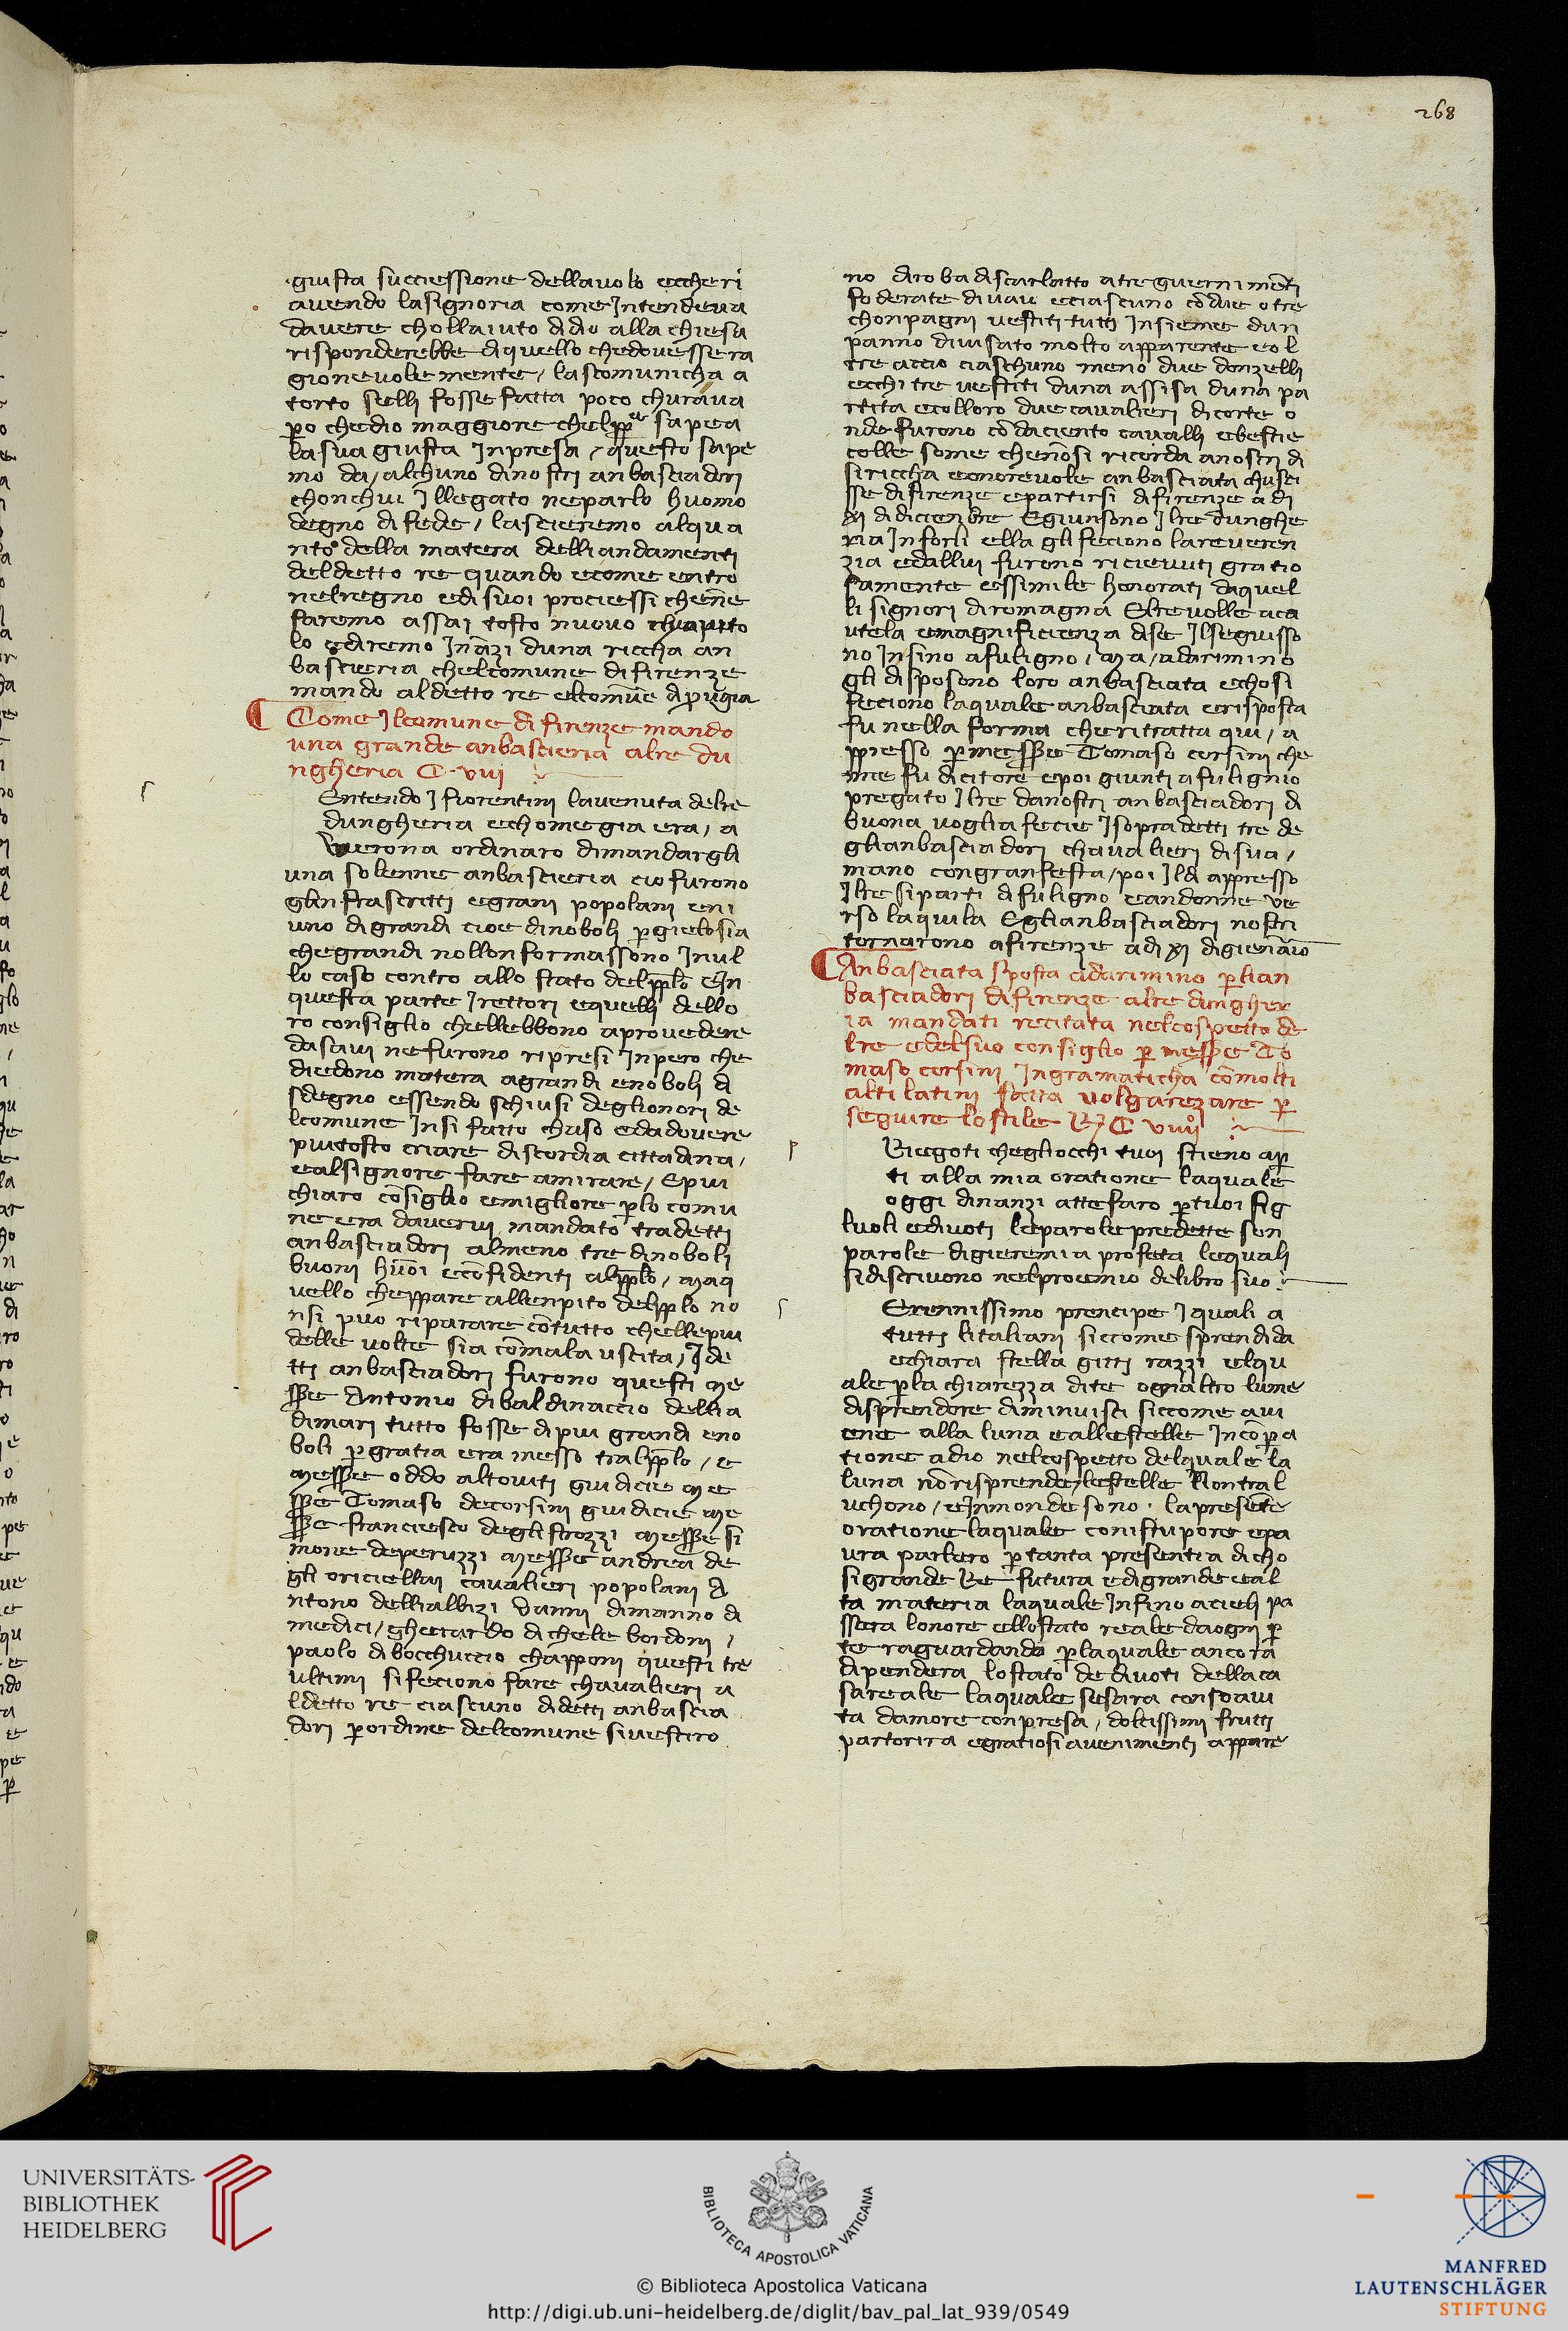 268
giusta succiessione dellauolo eccheri
auendo lasignoria come Jntendeua
dauere chollaiuto didio alla chiesa
risponderebbe diquello chedouessera
gioneuole mente, lascomunicha a
torto selli fosse fatta poco churaua
ꝑo chedio maggiore chelpp̄ᵉ sapea
la sua giusta Jnpresa, questo sape
mo da, alchuno dinostri anbasciadori
chonchui Jllegato neparlo huomo
degno difede, lascieremo alqua
nto della matera delliandamenti
deldetto re quando ecome entro
nelregno edisuoi prociessi chen̄e
faremo assai tosto nuouo chapito
lo ediremo Jnāzi duna riccha an
bascieria chelcomune difirenze
mando aldetto re elcomūe diꝑugia
Come Jlcomune di firenze mando
una grande anbascieria alre du
ngheria C. VIII
Entendo J fiorentini lauenuta delre
dungheria echomegia era, a
Verona ordinaro dimandargli
una solenne anbascieria cio furono
glinfrascritti egrani popolani eni
uno digrandi cioe dinoboli ꝑgielosia
chegrandi nollonformassono Jnul
lo caso contro allo stato delpp̄lo EJn
questa parte Jrettori equelli dello
ro consiglio chellebbono aprouedere
dasaui nefurono ripresi Jnpero che
diedono matera agrandi enoboli di
sdegno essendo schiusi deglionori de
lcomune Jnsi fatto chaso edadouere
piutosto criare discordia cittadina,
ealsignore fare amirare, Epiu
chiaro cōsiglio emigliore ꝑlo comu
ne era dauerui mandato tradetti
anbasciadori almeno tre dinoboli
buoni huōi ecōfidenti alpp̄lo, maq
uello cheppare allenpito delpp̄lo no
nsi puo riparare cōtutto chellepiu
delle uolte sia cōmala uscita, Jde
tti anbasciadori furono questi me
sꝑe Antonio dibaldinaccio dellia
dimari tutto fosse dipiu grandi eno
boli ꝑgratia era messo tralpp̄lo, e
messꝑe oddo altouiti giudicie me
sꝑe Tomaso decorsini giudicie me
sꝑe franciesco deglistrozzi messꝑe si
mone deperuzzi messꝑe andrea de
gli oriciellai caualieri popolani A
ntono dellialbizi Vanni dimanno di
medici, gherardo dichele bordoni,
paolo dibocchuccio chapponi questi tre
ultimi sifeciono fare chaualieri a
ldetto re ciascuno didetti anbascia
dori ꝑordine delcomune siuestiro
no diroba discarlatto atreguernimēti
foderate diuaiu eciasciuno cōdue otre
chonpagni uestiti tutti Jnsieme dun
panno diuisato molto apparente eol
tre accio ciaschuno meno due donzelli
ecchi tre uestiti duna assisa duna pa
rtita ecolloro duecaualieri dicorte o
nde furono cō daciento caualli ebestie
colle some chenōsi ricorda anostri di
siriccha eonoreuole anbasciata chusci
sse difirenze epartirsi difirenze adi
XI didicienbre Egiunsono Jlre dunghe
ria Jnforli ella gli feciono lareueren
zia edallui furono riceuuti gratio
samente essimile honorati daquel
li signori diromagna Elreuolle aca
utela emagnificienza dise Jlseguisso
no Jnsino afuligno, ma, adarimino
gli disposono loro anbasciata echosi
feciono laquale anbasciata erisposta
fu nella forma cheritratta qui, a
ppresso ꝑmessꝑe Tomaso corsini che
nne fu dicitore epoi giunti afulignio
pregato Jlre danostri anbasciadori di
buona uoglia fecie Jsopradetti tre de
glianbasciadori chaualieri disua,
mano congranfesta, poi Jldi appresso
Jlre siparti difuligno eandonne ve
rso laquila Eglianbasciadori nostri
tornarono afirenze adi XI digienaio
Anbasciata sposta adarimino ꝑlian
basciadori difirenze alre dungher
ia mandati recitata nelcospetto de
lre edelsuo consiglio ꝑ messꝑe To
maso corsini Jngramaticha cōmolti
alti latini fatta uolgarezare ꝑ
seguire lostile C VIIII
Riegoti chegliocchi tuoi stieno aꝑ
ti alla mia oratione laquale
oggi dinanzi attefaro ꝑtuoi fig
luoli ediuoti leparole predette son
parole digieremia profeta lequali
sidiscriuono nelproemio delibro suo
Erennissimo prencipe Jquali a
tutti litaliani siccome sprendida
echiara stella gitti razzi elqu
ale ꝑla chiarezza dite ognialtro lume
disprendore diminuisci siccome aui
ene alla luna eallestelle Jncōꝑa
tione adio nelcospetto delquale la
luna nōrisprende, lestelle Nontral
uchono, eInmonde sono. lapresēte
oratione laquale conistupore epa
ura parlero ꝑtanta presentia dicho
sigrande Re futura edigrande eal
ta materia laquale Jnfino acieli pa
ssera lonore ellostato reale daogni ꝑ
te raguardando ꝑlaquale ancora
dipendera lostato dediuoti dellaca
sareale laquale sesara consoaui
ta damore conpresa, dolcissimi frutti
partorira egratiosi auenimenti appare
UNIVERSITÄTS-
BIBLIOTHEK
HEIDELBERG
BIBLIOTECA APOSTOLICA VATICANA
© Biblioteca Apostolica Vaticana
http://digi.ub.uni-heidelberg.de/diglit/bav_pal_lat_939/0549
MANFRED
LAUTENSCHLÄGER
STIFTUNG